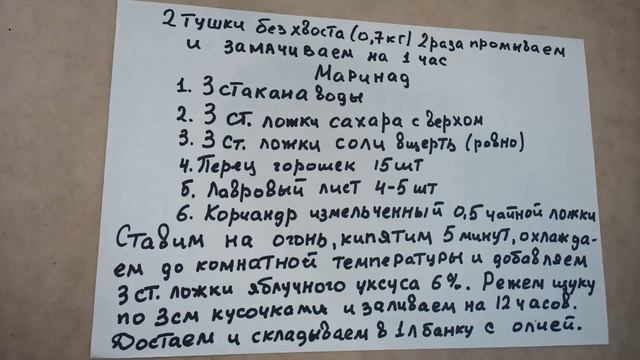 2 тушки без хвоста (0,7кг) 2 раза промываем
и замачиваем на 1 час
Маринад
1. 3 стакана воды
2. 3 ст. ложки сахара с верхом
3. 3 ст. ложки соли вщерть (ровно)
4. Перец горошек 15 шт
5. Лавровый лист 4-5 шт
6. Кориандр измельченный 0,5 чайной ложки
Ставим на огонь, кипятим 5 минут, охлажда-
ем до комнатной температуры и добавляем
3 ст. ложки яблучного уксуса 6%. Режем щуку
по 3см кусочками и заливаем на 12 часов.
Достаем и складываем в 1л банку с олией.